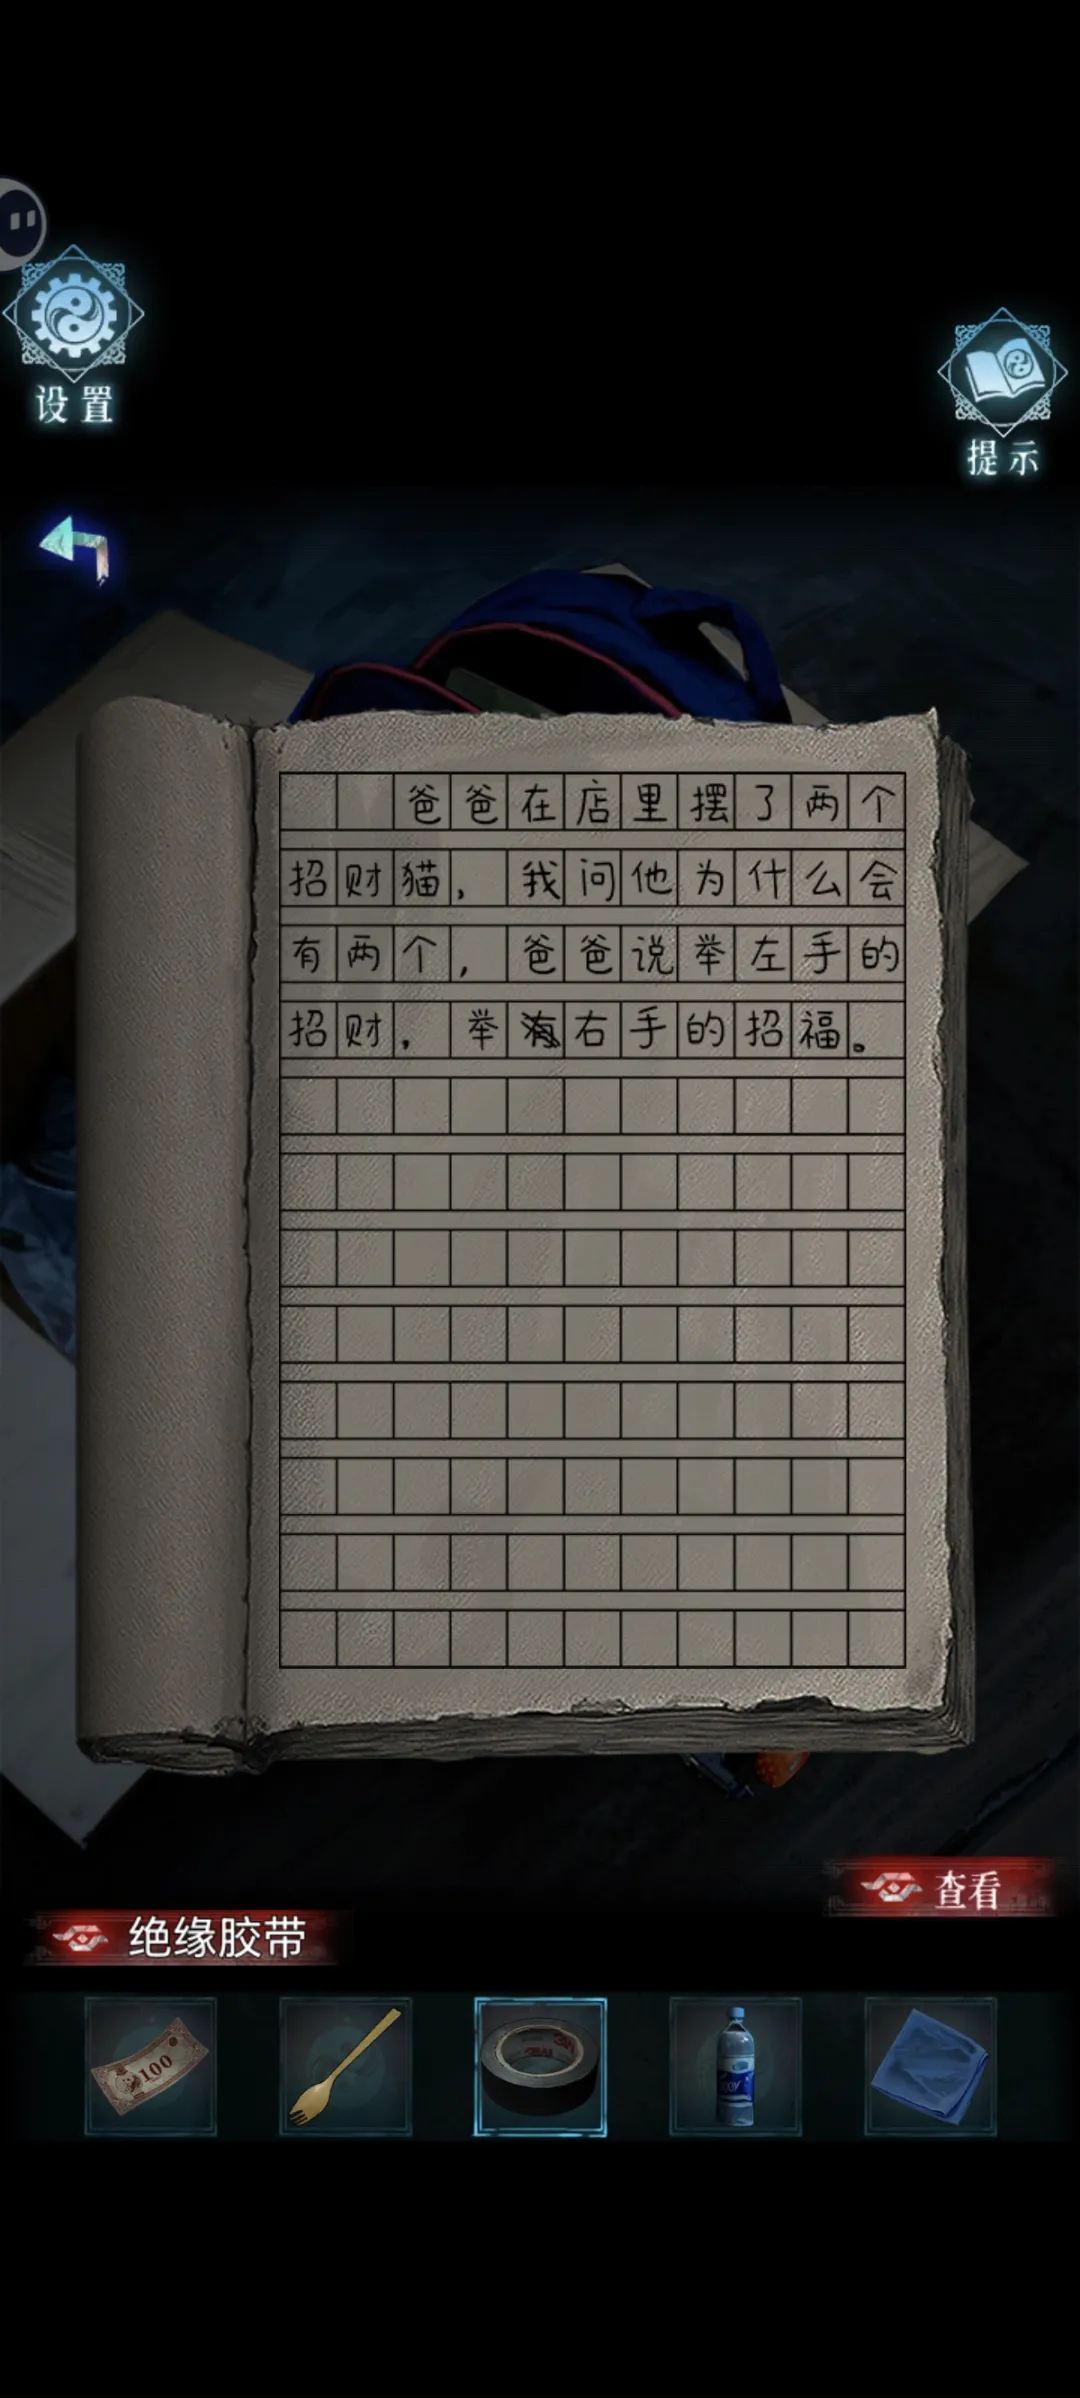 设置
提示
爸爸在店里摆了两个
招财猫，我问他为什么会
有两个，爸爸说举左手的
招财，举右手的招福。
查看
绝缘胶带
100